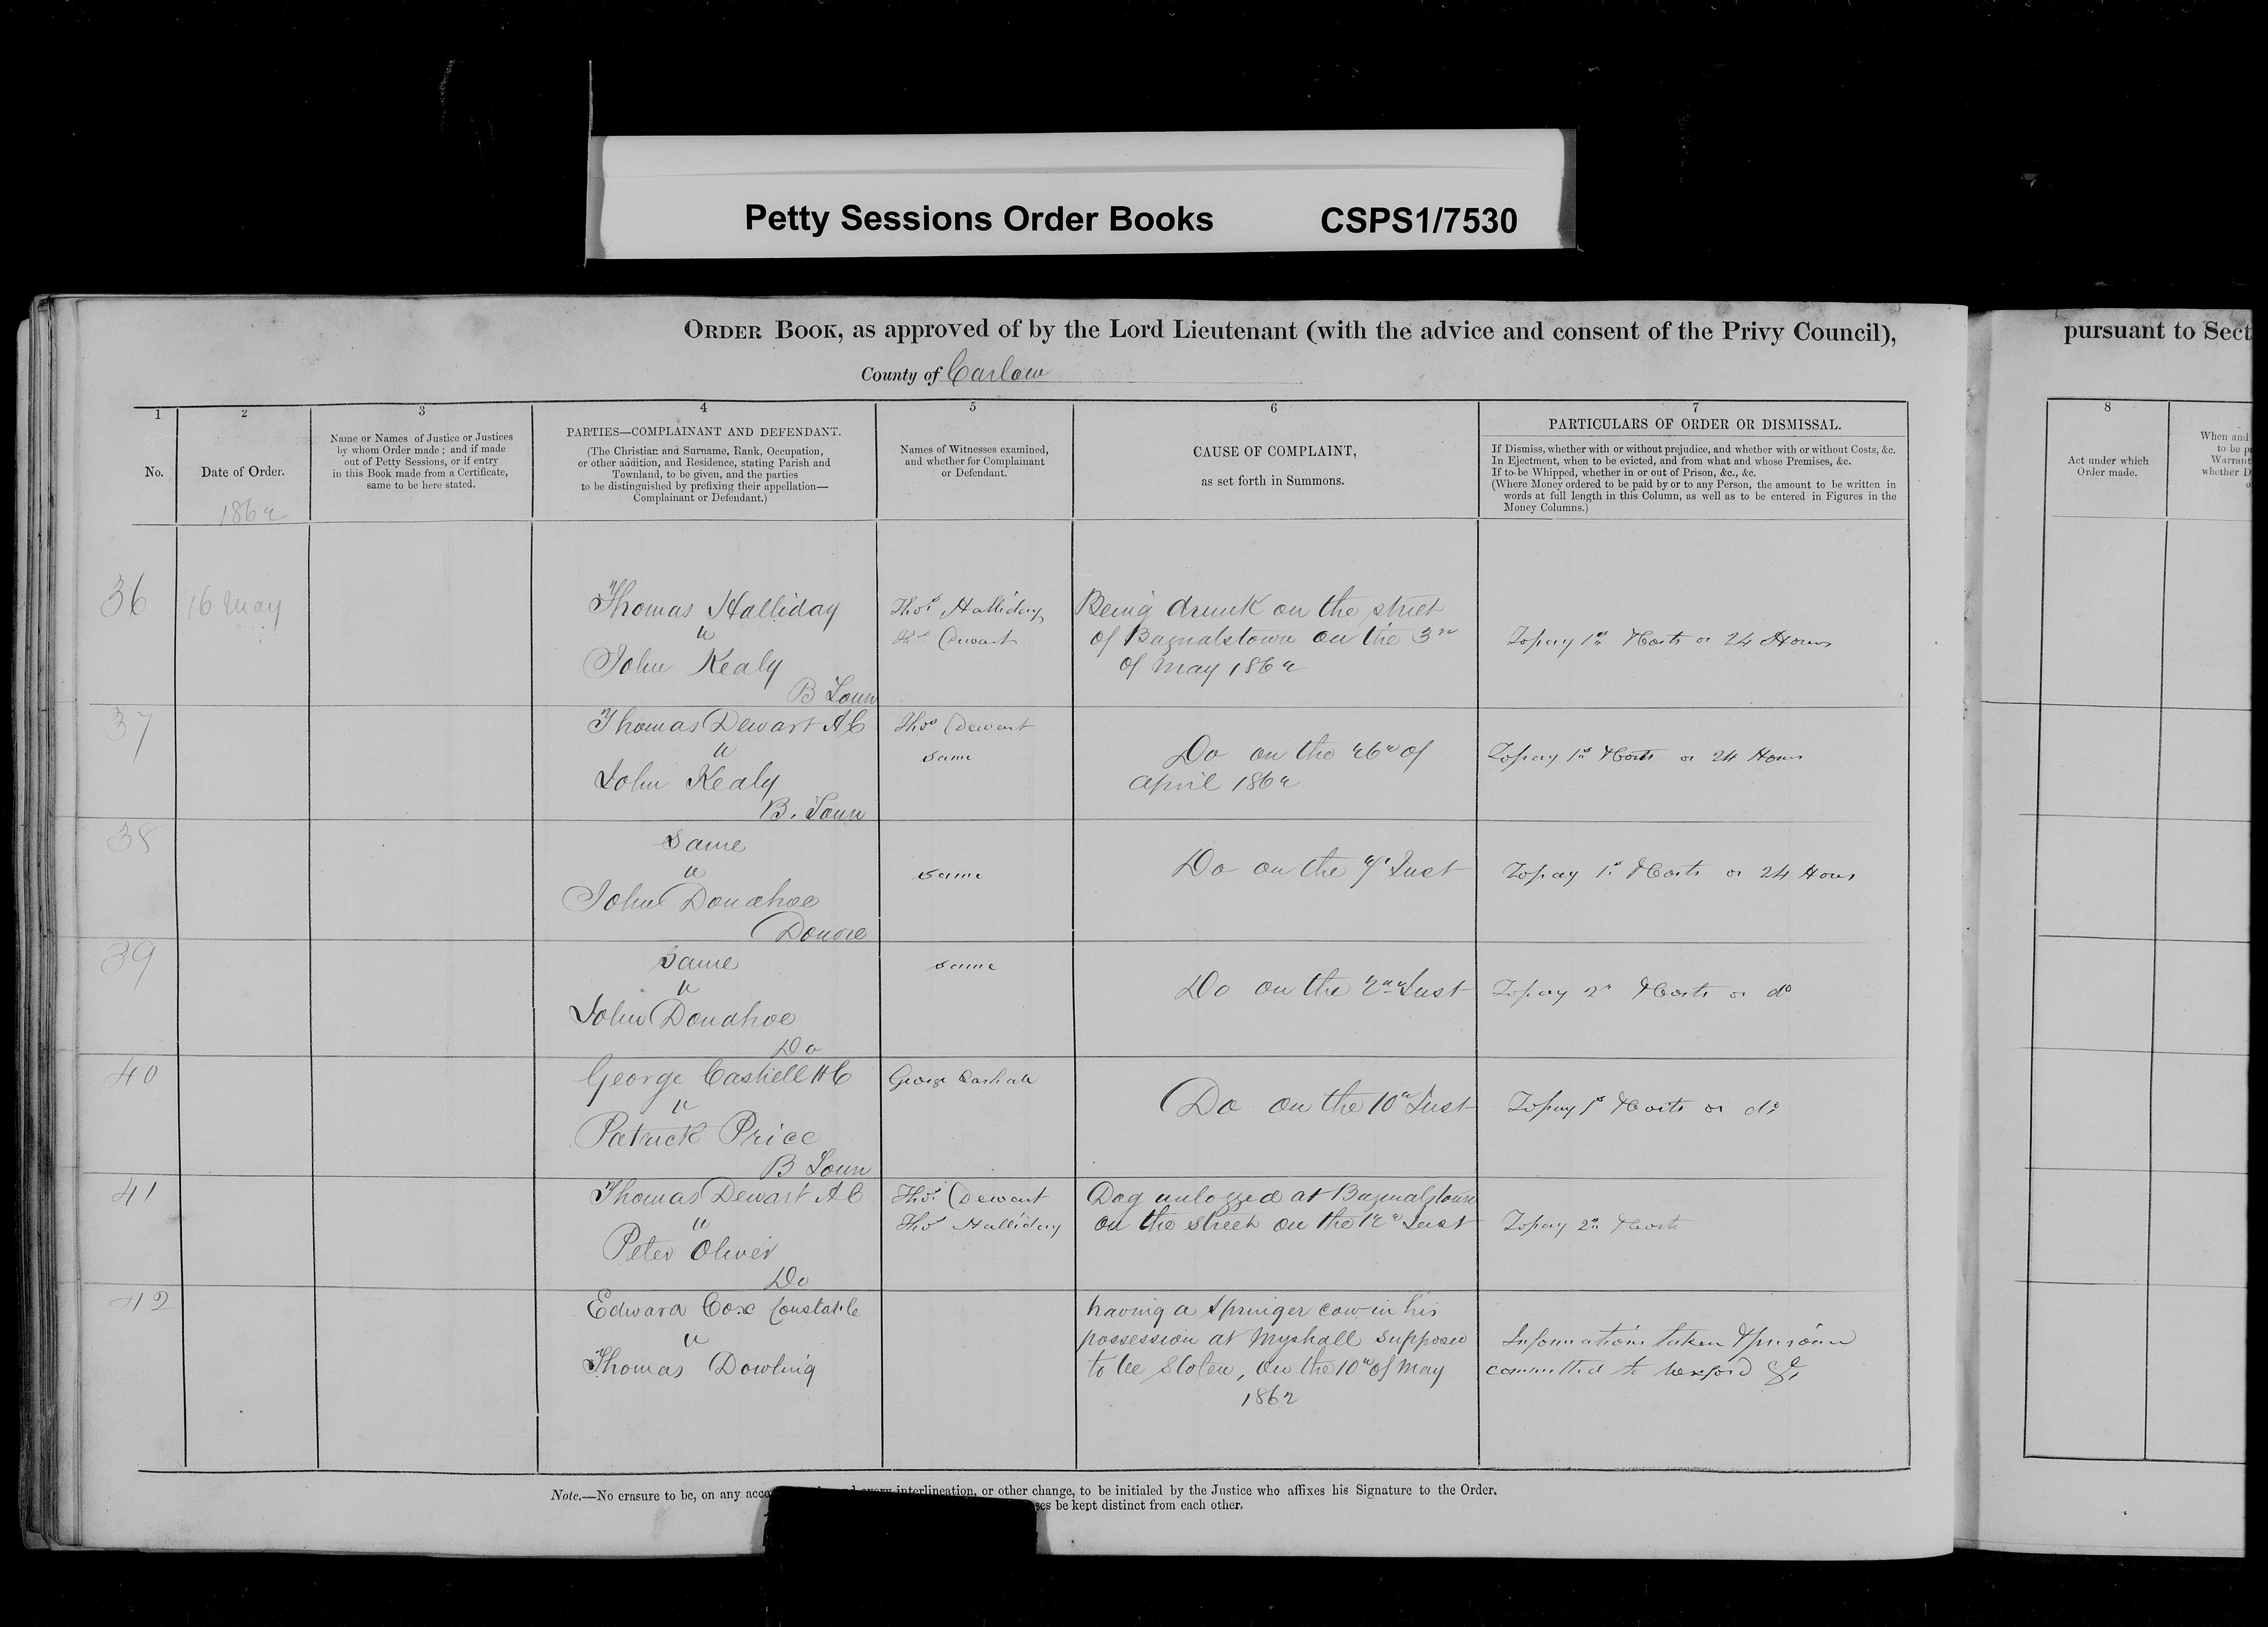 Petty Sessions Order Books CSPS1/7530
ORDER BOOK, as approved of by the Lord Lieutenant (with the advice and consent of the Privy Council),
pursuant to Sect
County of Carlow
1 2 3 4 5 6 7 8
No.
Date of Order.
1862
Name or Names of Justice or Justices
by whom Order made; and if made
out of Petty Sessions, or if entry
in this Book made from a Certificate,
same to be here stated.
PARTIES—COMPLAINANT AND DEFENDANT.
(The Christian and Surname, Rank, Occupation,
or other addition, and Residence, stating Parish and
Townland, to be given, and the parties
to be distinguished by prefixing their appellation—
Complainant or Defendant.)
Names of Witnesses examined,
and whether for Complainant
or Defendant.
CAUSE OF COMPLAINT,
as set forth in Summons.
PARTICULARS OF ORDER OR DISMISSAL.
If Dismiss, whether with or without prejudice, and whether with or without Costs, &c.
In Ejectment, when to be evicted, and from what and whose Premises, &c.
If to be Whipped, whether in or out of Prison, &c., &c.
(Where Money ordered to be paid by or to any Person, the amount to be written in
words at full length in this Column, as well as to be entered in Figures in the
Money Columns.)
Act under which
Order made.
When and
to be p
Warrant
whether D
36
16 May
Thomas Halliday
v
John Kealy
B Town
Thos Halliday
Thos Dewart
Being drunk on the street
of Bagnalstown on the 3rd
of May 1862
To pay 1s & Costs or 24 Hours
37
Thomas Dewart AC
v
John Kealy
B. Town
Thos Dewart
same
Do on the 26th of
April 1862
To pay 1s & Costs or 24 Hours
38
Same
v
John Donahoe
Donore
same
Do on the Inst
To pay 1s & Costs or 24 Hours
39
Same
v
John Donahoe
Do
same
Do on the 2nd Inst
To pay 2s & Costs or do
40
George Cashell HC
v
Patrick Price
B Town
George Cashell
Do on the 10th Inst
To pay 1s & Costs or do
41
Thomas Dewart AC
v
Peter Oliver
Do
Thos Dewart
Thos Halliday
Dog unlogged at Bagnalstown
on the street on the 12th Inst
To pay 2s & Costs
42
Edward Cox Constable
v
Thomas Dowling
having a Springer cow in his
possession at Myshall supposed
to be Stolen, on the 10th of May
1862
Informations taken & prisoner
committed to Wexford
Note.—No erasure to be, on any acco every interlineation, or other change, to be initialed by the Justice who affixes his Signature to the Order.
ses be kept distinct from each other.